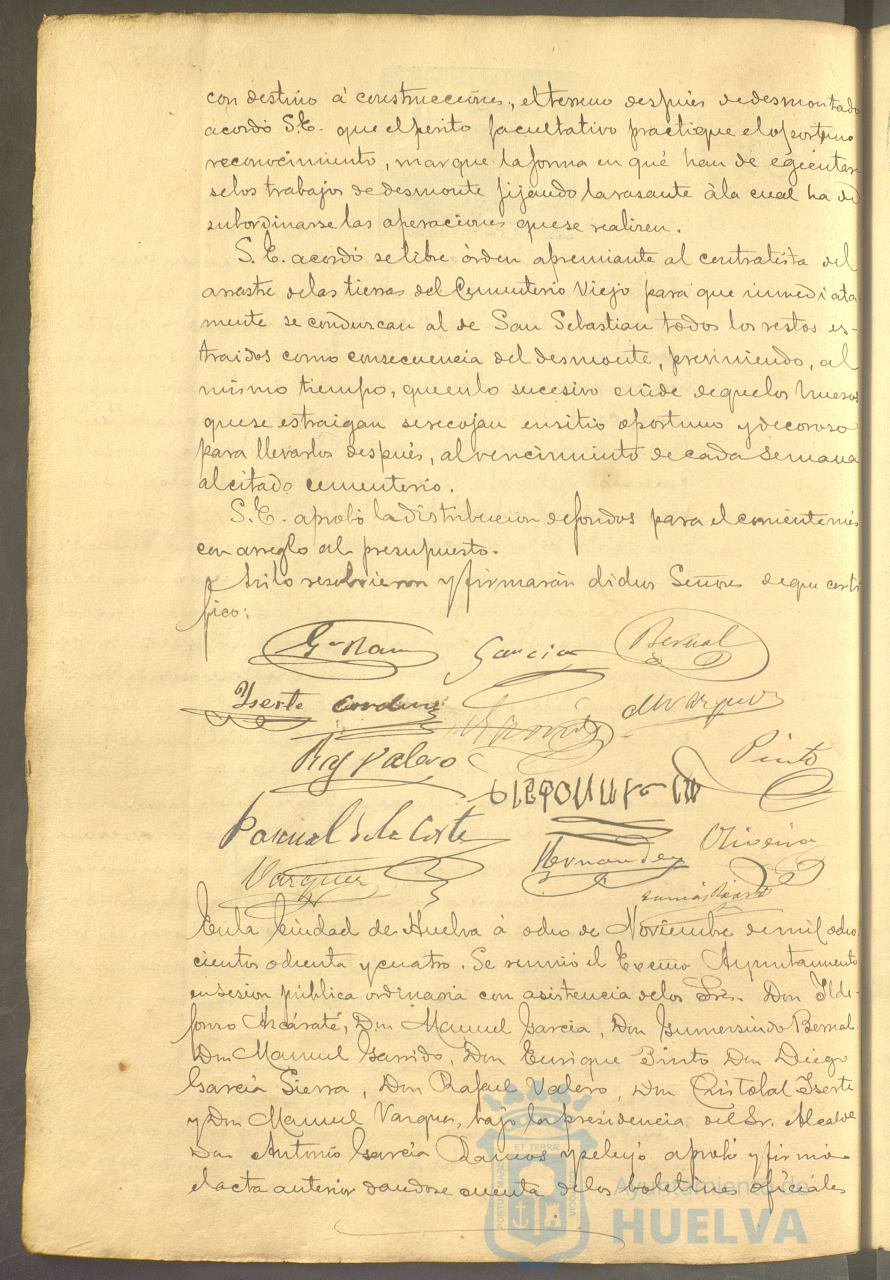 con destino á construcciones, el terreno después de desmontado
acordó S.E. que el perito facultativo practique el oportuno
reconocimiento, marque la forma en qué han de egecutar
se los trabajos de desmonte fijando la rasante á la cual ha de
subordinarse las operaciones que se realizen.
S.E. acordó se libre órden apremiante al contratista del
arrastre de las tierras del Cementerio Viejo para que inmediata-
mente se conduzcan al de San Sebastian todos los restos es-
traidos como consecuencia del desmonte, previniendo, al
mismo tiempo, que en lo sucesivo cuide de que los huesos
que se estraigan se recojan en sitio oportuno y decoroso
para llevarlos después, al vencimiento de cada semana
al citado cementerio.
S.E. aprobó la distribucion de fondos para el corriente mes
con arreglo al presupuesto.
Asi lo resolvieron y firmarán dichos Señores de que certi
fico:
García Bernal
Yserte
Raf Valero Pinto
Pascual de la Corte
Hernandez Oliveira
Vazquez
En la Ciudad de Huelva á ocho de Noviembre de mil ocho
cientos ochenta y cuatro. Se reunió el Excmo Ayuntamiento
en sesion pública ordinaria con asistencia de los Sres. Don Ilde-
fonso Alcáraté, Don Manuel Garcia, Don Gumersindo Bernal
Don Manuel Garrido, Don Enrique Pinto Don Diego
García Sierra, Don Rafael Valero, Don Cristobal Yserte
y Don Manuel Vazquez, bajo la presidencia del Sr. Alcalde
Don Antonio García Ramos y se leyó aprobó y firmó
el acta anterior dandose cuenta de los boletines oficiales
Ayuntamiento de
HUELVA